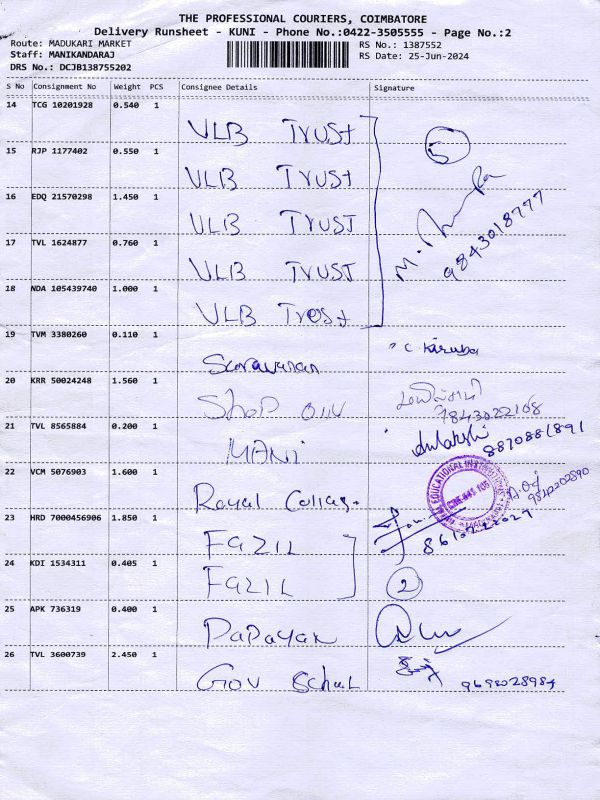 THE PROFESSIONAL COURIERS, COIMBATORE
Delivery Runsheet - KUNI - Phone No.:0422-3505555 - Page No.:2
Route: MADUKARI MARKET
Staff: MANIKANDARAJ
DRS No.: DCJB138755202
RS No.: 1387552
RS Date: 25-Jun-2024
S No Consignment No Weight PCS Consignee Details Signature
14 TCG 10201928 0.540 1 VLB Trust
5
15 RJP 1177402 0.550 1 VLB Trust
16 EDQ 21570298 1.450 1 VLB TRUST
9843018777
17 TVL 1624877 0.760 1 VLB TRUST
18 NDA 105439740 1.000 1 VLB Trest
19 TVM 3380260 0.110 1 Saravanan
20 KRR 50024248 1.560 1 Shop
9843022108
21 TVL 8565884 0.200 1 MANi
8870881891
22 VCM 5076903 1.600 1 Royal Collag.
EDUCATIONAL INSTITUTIONS
23 HRD 7000456906 1.850 1 FAZIL
24 KDI 1534311 0.405 1 FAZIL
2
25 APK 736319 0.400 1 PAPAYAN
26 TVL 3600739 2.450 1 GOV Schul